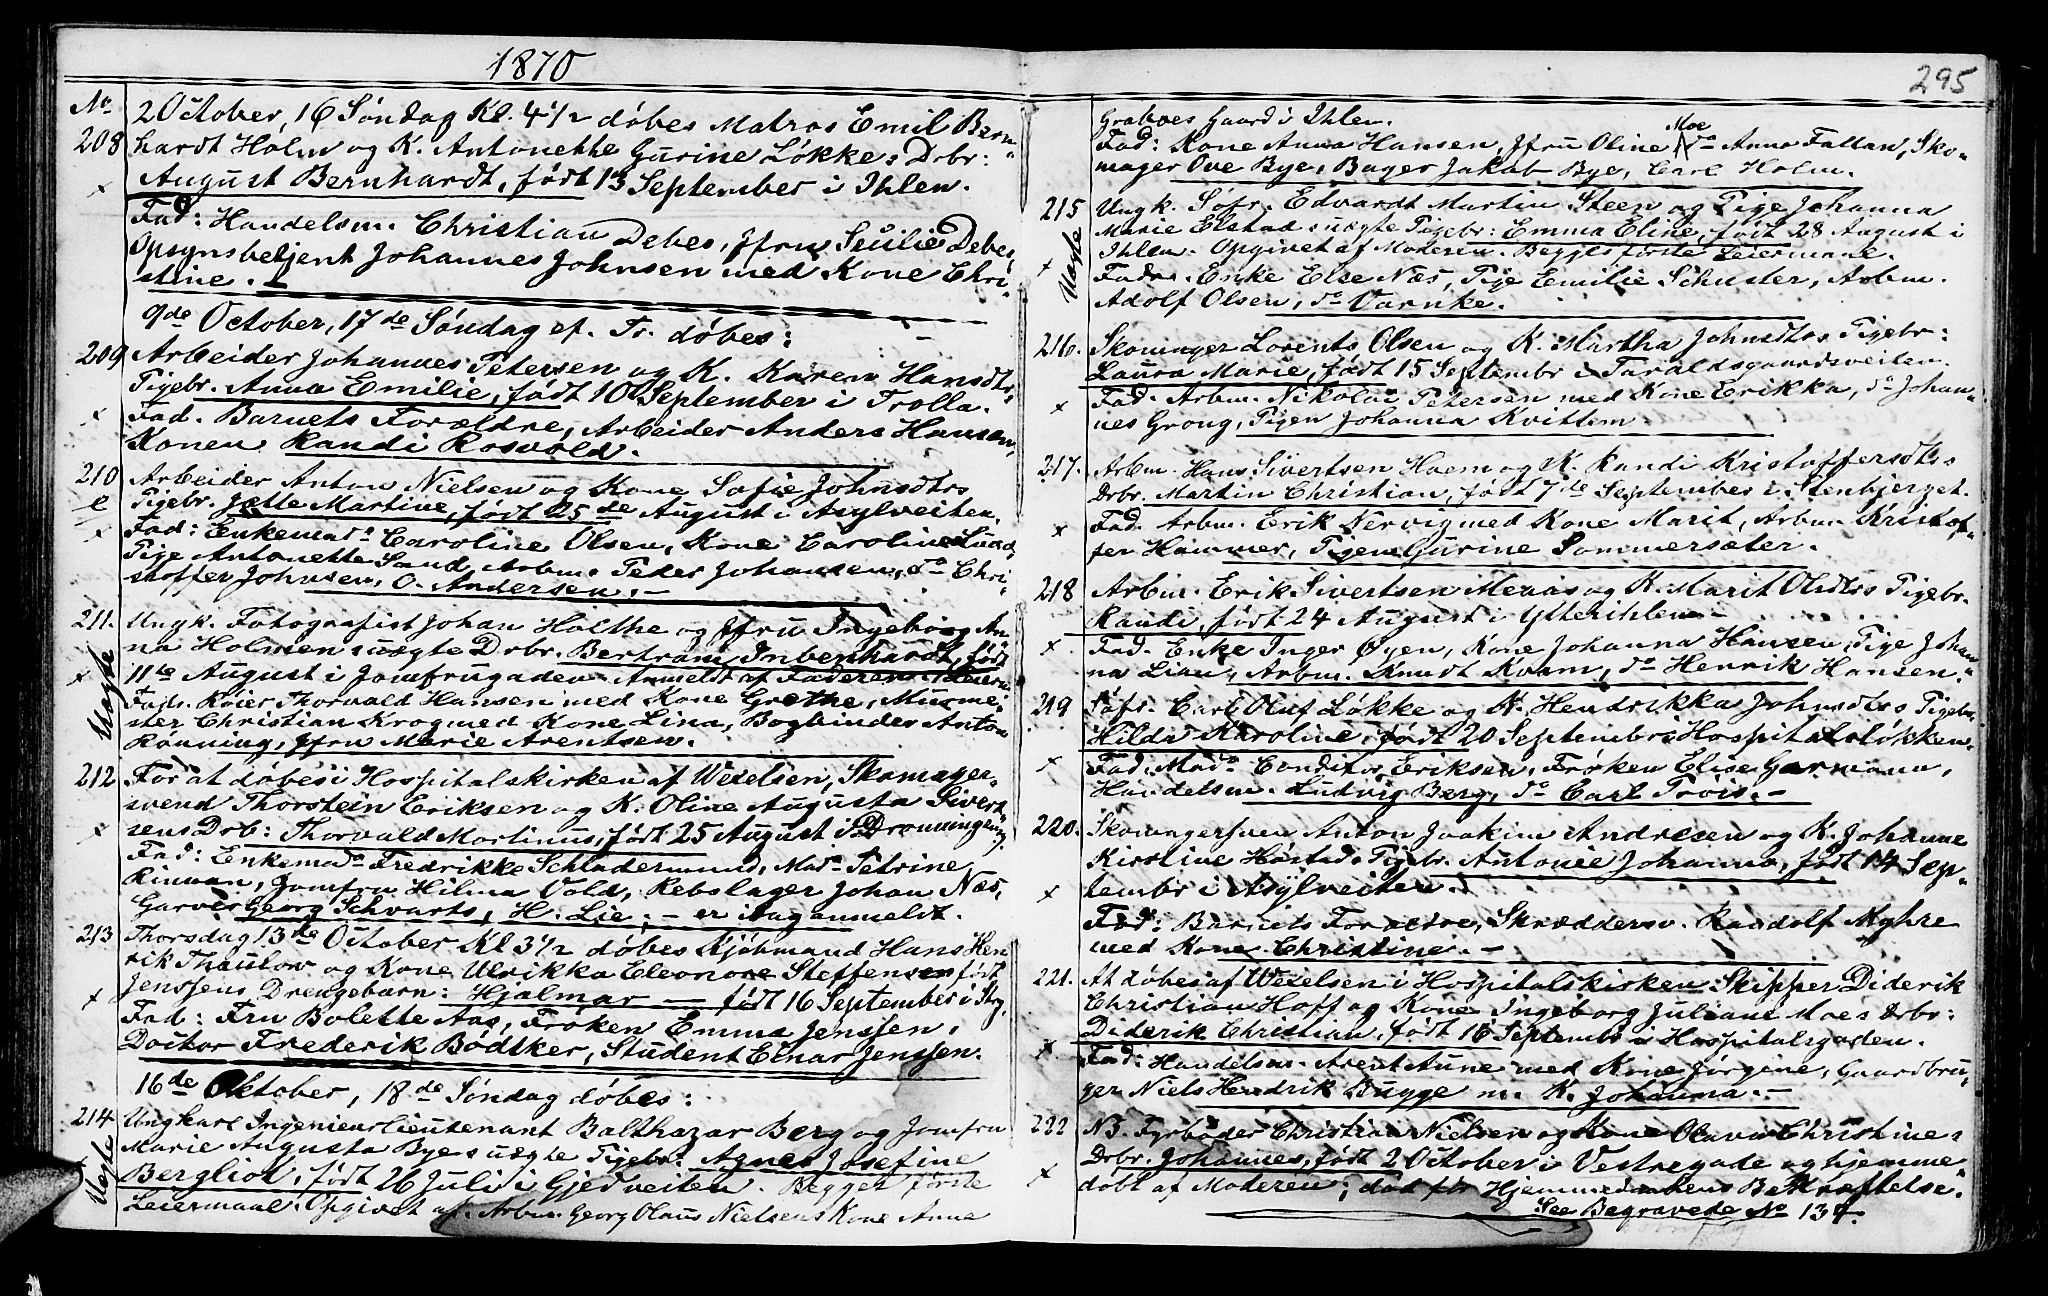 1870
No
2 October, 16 Søndag Kl. 4 1/2 døbes Matros Emil Bern-
208 hardt Holm og K. Antonette Gurine Løkkes Drbr:
× August Bernhardt, født 13 September i Ihlen.
Fad: Handelsm. Christian Debes, Jfru Secilie Debes,
Opsynsbetjent Johannes Johnsen med Kone Chri-
stine.
9de October, 17de Søndag ef. Tr. døbes:
209 Arbeider Johannes Petersen og K. Karen Hansdts
Pigebr. Anna Emilie, født 10 September i Trolla.
× Fad. Barnets Forældre, Arbeider Anders Hansen,
Konen Randi Rosvold.
210 Arbeider Anton Nielsen og Kone Sofie Johnsdtrs
e Pigebr. Jette Martine, født 25de August i Asylveiten.
× Fad: Enkemad. Caroline Olsen, Kone Caroline Lund,
Pige Antonette Sand, Arbm. Peter Johansen, do Chri-
stoffer Johnsen, O. Andersen. -
211. Ungk. Fotografist Johan Holthe og Jfru Ingeborg An-
na Holmsen uægte Drbr. Bertram Inbenhardt, født
× Uægte 11te August i Jomfrugaden. Anmeldt af Faderen.
Fad. Røier Thorvald Hansen med Kone Grethe, Murme-
ster Christian Krog med Kone Lina, Bogbinder Anton
Rønning, Jfru Marie Arentsen.
212 For at døbes i Hospitalskirken af Wexelsen, Skomager-
svend Thorstein Eriksen og K. Oline Augusta Sivert-
× sens Drb: Thorvald Martinus, født 25 August i Dronningens g.
Fad: Enkemad. Fredrikke Schladermund, Mad. Petrine
Rinnan, Jomfru Hilma Vold, Rebslager Johan Næs,
Garver Georg Schvarts, H. Lie, - er idag anmeldt.
213 Thorsdag 13de October Kl 3 1/2 døbes Kjøbmand Hans Hen-
rik Thaulow og Kone Ulrikka Eleonore Steffensen født
Jenssens Drengebarn: Hjalmar - født 16 September i Strg.
× Fad: Fru Bolette Aas, Frøken Emma Jenssen,
Doctor Frederik Bødtker, Student Einar Jenssen.
16de Oktober, 18de Søndag døbes:
214 Ungkarl Ingenieurlieutenant Balthazar Berg og Jomfru
Marie Augusta Byes uægte Pigebr: Agnes Josefine
Uægte Bergliot, født 26 Juli i Gjedveiten. Begges første
Leiermaal. Opgivet af Arbm. Georg Olaus Nielsens Kone Anne
295
Graboes Gaard i Ihlen.
Fad: Kone Anna Hansen, Jfru Oline Moe do Anna Fallan, Sko-
mager Ove Bye, Bager Jakob Bye, Carl Holm.
215 Ungk. Søfr. Edvardt Martin Steen og Pige Johanna
Marie Elstads uægte Pigebr: Emma Eline, født 28 August i
× Uægte Ihlen. Opgivet af Moderen. Begges første Leiermaal.
Fadr. Enke Else Næs, Pige Emilie Schuster, Arbm.
Adolf Olsen, do Varnke.
216. Skomager Lorents Olsen og K. Martha Johnsdtrs Pigebr:
Laura Marie, født 15 Septembr i Taraldsgaardsveiten.
× Fad. Arbm. Nikolai Petersen med Kone Erikka, do Johan-
nes Grong, Pigen Johanna Kvittem.
217. Arbm. Hans Sivertsen Hoem og K. Randi Kristoffersdtrs
Drbr. Martin Christian, født 7de September i Stenbjerget.
× Fad. Arbm. Erik Nervig med Kone Marit, Arbm Kristof-
fer Hammer, Pigen Gurine Sommersæter.
218 Arbm. Erik Sivertsen Menas og K. Marit Olsdtrs Pigebr.
Randi, født 24 August i Ytterihlen.
× Fad. Enke Inger Øyen, Kone Johanna Hansen, Pige Johan-
na Lian, Arbm. Knudt Kvam, do Henrik Hansen.
219 Søfr. Carl Oluf Løkke og K. Hendrikka Johnsdtrs Pigebr.
Hilda Karoline, født 20 Septembr i Hospitalsløkken.
× Fad. Mad. Conditor Eriksen, Frøken Elise Garmann,
Handelsm. Ludvig Berg, do Carl Trois. -
220. Skomagersven Anton Joakim Andresen og K. Johanne
Kirstine Høstads Pigebr. Antonie Johanna, født 14 Sep-
× tembr i Asylveiten.
Fad: Barnets Forældre, Skræddersv. Randolf Myhre
med Kone Christine. -
221. At døbes af Wexelsen i Hospitalskirken Skipper Diderik
Christian Hoff og Kone Ingeborg Juliane Moes Drbr:
× Diderik Christian, født 16 Septembr i Hospitalsgaden.
Fad: Handelsm. Arent Aune med Kone Jørgine, Gaardbru-
ger Niels Hendrik Bugge m. K. Johanna. -
222 NB. Fyrbøder Christian Nielsen og Kone Olava Christines
Drbr. Johannes, født 2 October i Vestregade og hjemme-
× døbt af Moderen; død før Hjemmedaabens Bekræftelse.
See Begravede No 137.